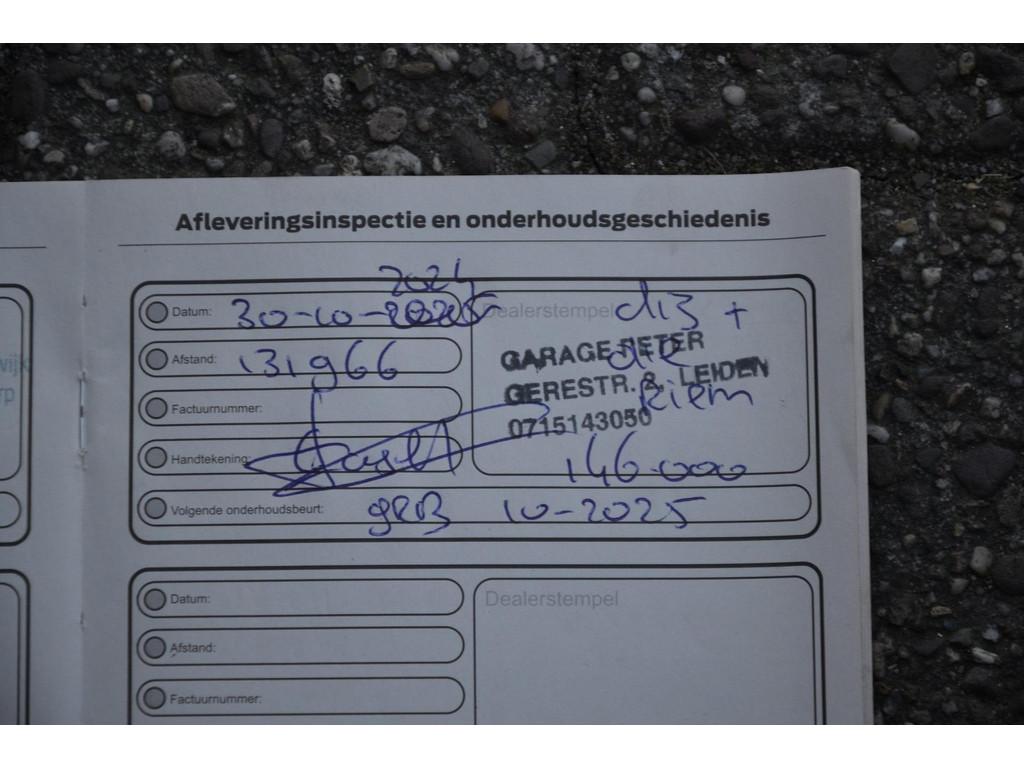 Afleveringsinspectie en onderhoudsgeschiedenis
2024
Datum: 30-10-2025
Dealerstempel
diz +
Afstand: 131966
GARAGE PETER
GERESTR. 8, LEIDEN
riem
0715143050
Factuurnummer:
Handtekening:
146.000
Volgende onderhoudsbeurt: grB 10-2025
Datum:
Dealerstempel
Afstand:
Factuurnummer: